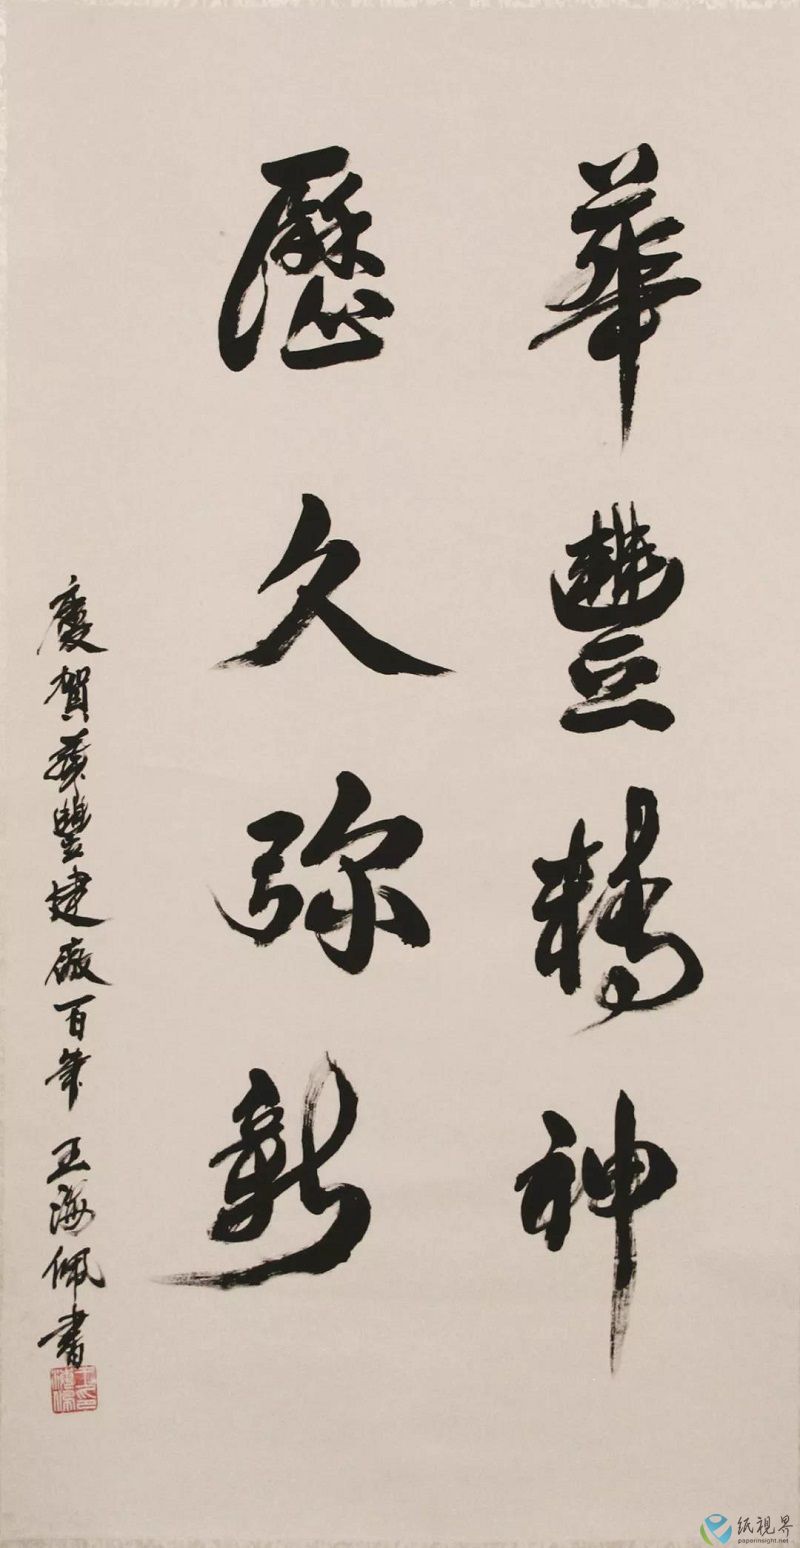 華豐精神
歷久弥新
慶賀華豐建廠百年 王海佩書
纸视界
paperinsight.net